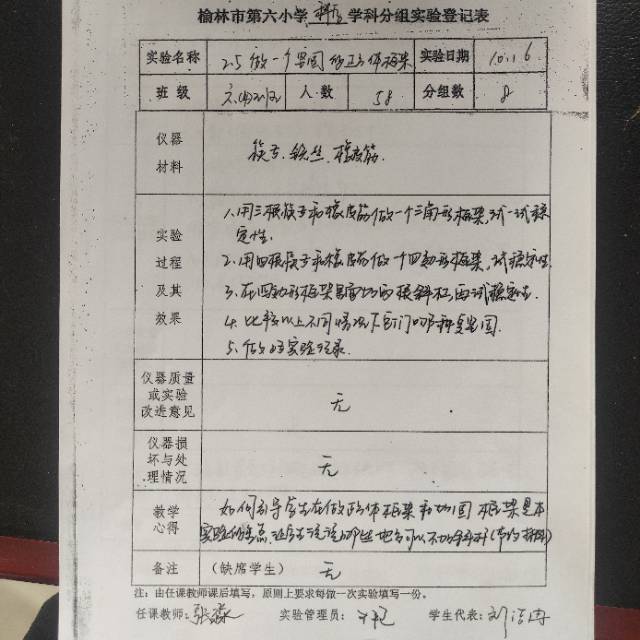 榆林市第六小学 科学 学科分组实验登记表
实验名称 2.5 做一个坚固的正方体框架 实验日期 10.16
班 级 六(4)班 人 数 58 分组数 8
仪器材料 筷子、铁丝、橡皮筋.
实验过程及其效果 1.用三根筷子和橡皮筋做一个三角形框架,试一试稳
定性.
2.用四根筷子和橡皮筋做一个四边形框架,试稳定性
3.在四边形框架 斜杠,再试稳定性.
4.比较以上不同情况下它们哪种更坚固.
5.做好实验记录.
仪器质量或实验改进意见 无
仪器损坏与处理情况 无
教学心得 如何引导学生在做正方体框架 框架是本
实验的难点,让学生说说哪些地方可以不加斜杆(节约材料)
备注 (缺席学生) 无
注:由任课教师课后填写,原则上要求每做一次实验填写一份。
任课教师:张 实验管理员: 学生代表:刘